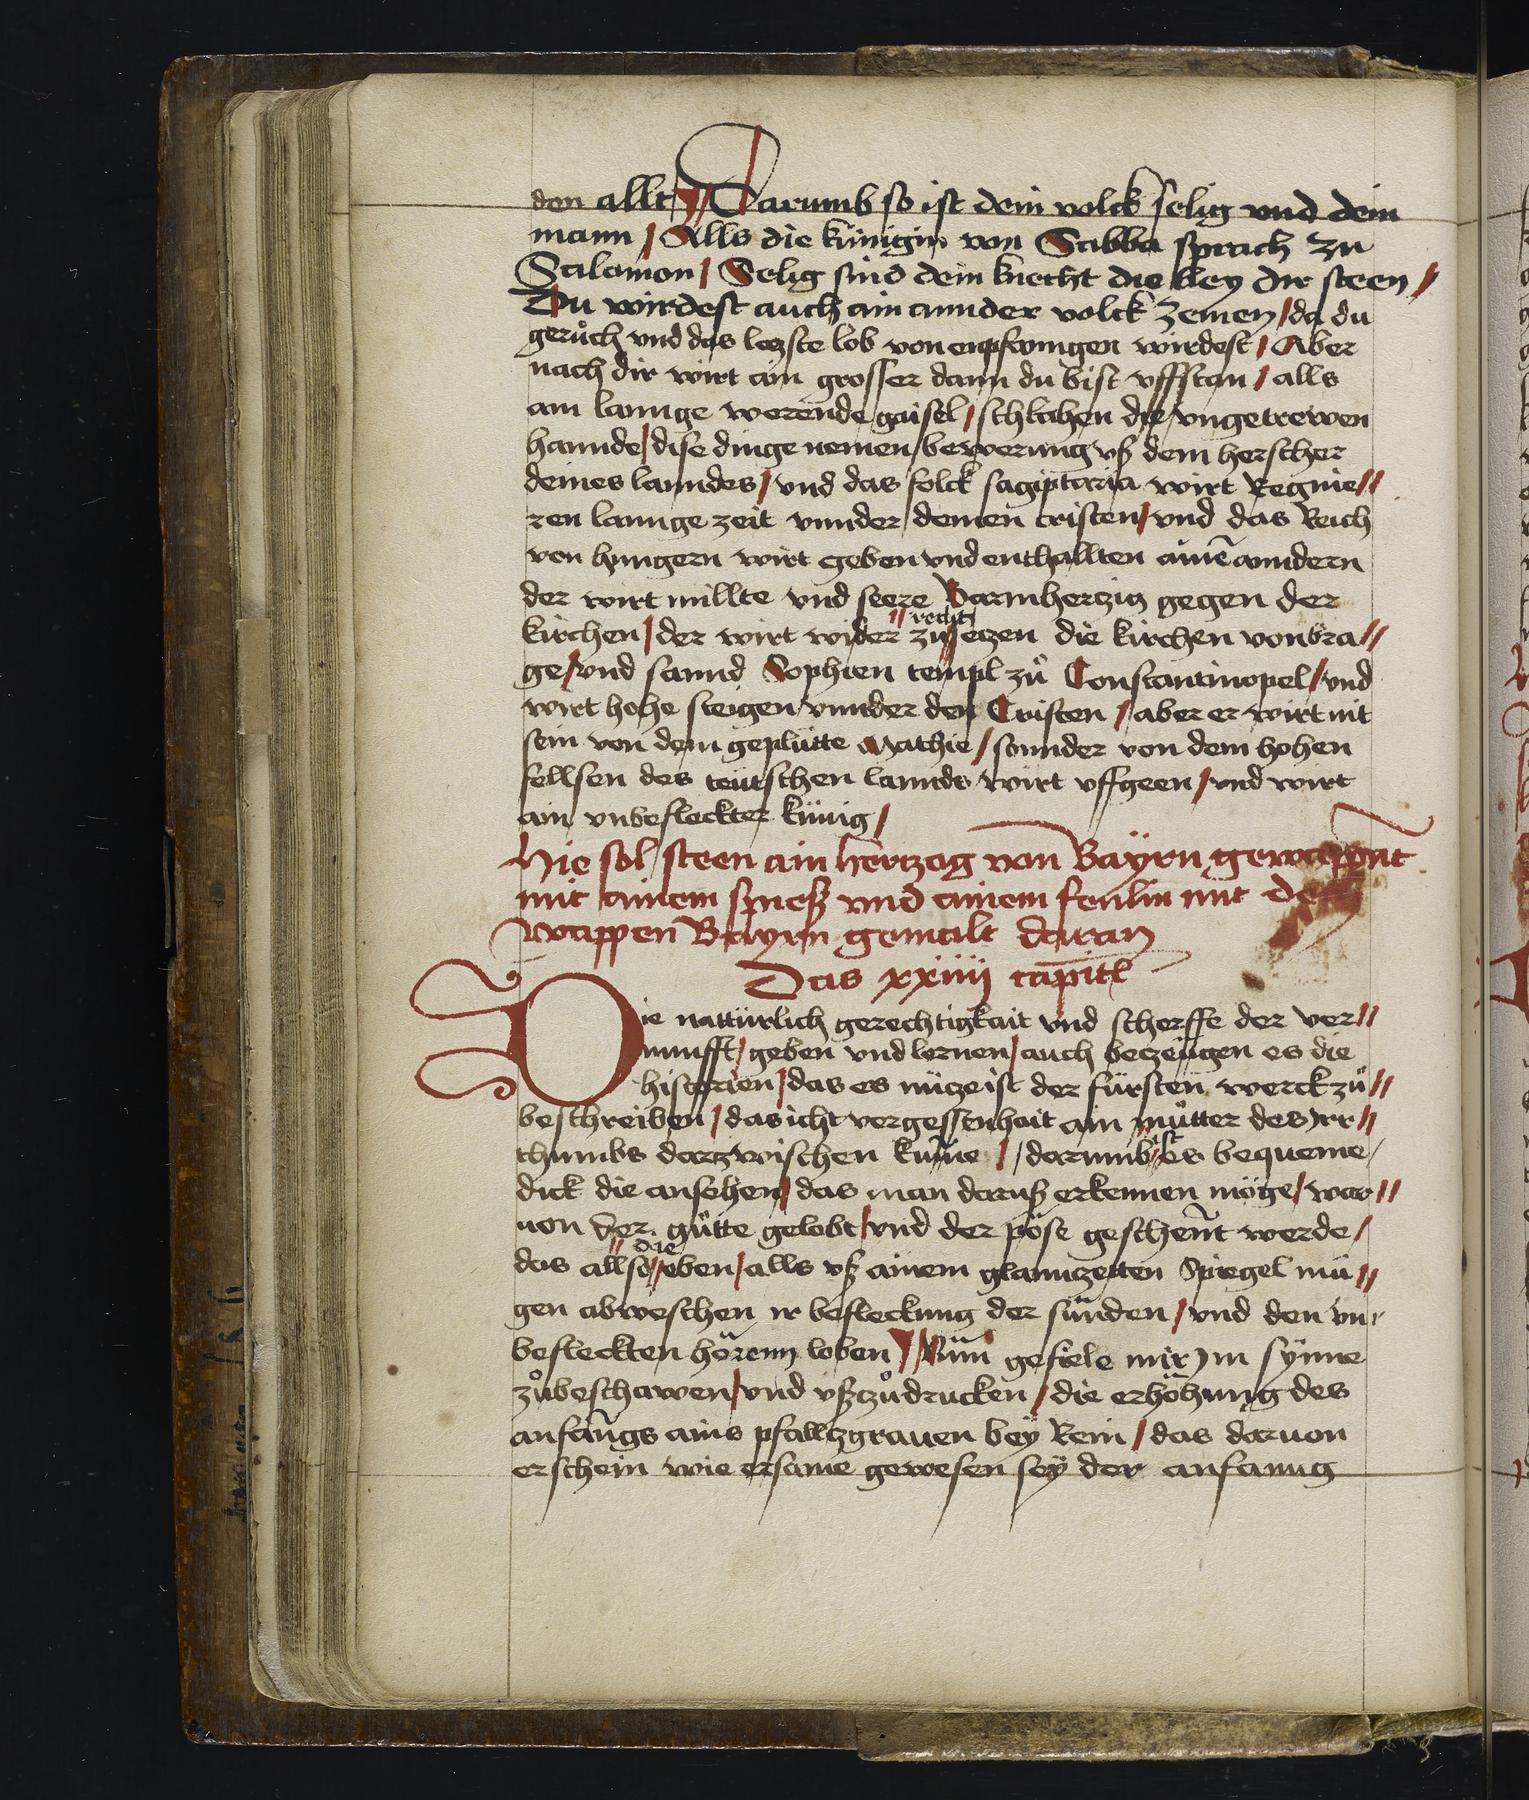 den allt // Darumb so ist dein volck selig vnd dein
mann / Alls die künigin von Sabba sprach zu
Salomon / Selig sind dein knecht die bey dir steen /
Du wirdest auch ain annder volck zemen / da du
geruͦch vnd das letzste lob von enpfanngen wirdest / Aber
nach dir wirt ain grosser dann du bist vffstan / alls
ain lannge werende gaisel / schlahen die vngetrewen
hannde / dise dinge nemen bewerung vß dem herscher
deines lanndes / vnd das folck sagiptaria wirt Regnie//
ren lannge zeit vnnder deinen cristen / vnd das Reich
von hungern wirt geben vnd enthallten ainē anndern
der wirt millte vnd seere Barmhertzig gegen der
kirchen / der wirt wider // recht zu setzen die kirchen von bra//
ge / vnd sannd Sophien templ zuͦ Constantinopel / vnd
wirt hohe steigen vnnder den Cristen / aber er wirt nit
sein von dem geplütte Mathie / sonnder von dem hohen
fellsen des teütschen lannds wirt vffgeen / vnd wirt
ain vnbefleckter künig /
Hie sol steen ain hertzog von Bayrn gewappnt
mit ainem spieß vnd ainem fenlin mit dem
wappen Bayrn gemalt daran
Das xxiiii capitl
Die nattürlich gerechtigkait vnd scherffe der ver//
nunfft / geben vnd lernen / auch bezeügen es die
historien / das es nütze ist der fürsten werck zuͦ//
beschreiben / das icht vergessenhait ain muͦtter des irr//
thumbs dartzwischen kum̄e / darumb ist es bequeme
dick die ansehen / das man daruß erkennen möge / war//
von der gütte gelobt / vnd der pöse geschent werde /
das allso // die eben / alls vß ainem glanntzetten Spiegel mü//
gen abweschen ir befleckung der sünden / vnd den vn//
befleckten hörenn loben // Nun gefiele mir im synne
zuͦbeschawen / vnd vßtzuͦdrucken / die erhöhung des
anfangs ains pfalltzgrauen bey Rein / das daruon
erschein wie ersame gewesen sey der anfanng